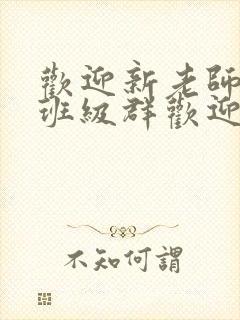 歡迎新老師
班級群歡迎
不知何謂